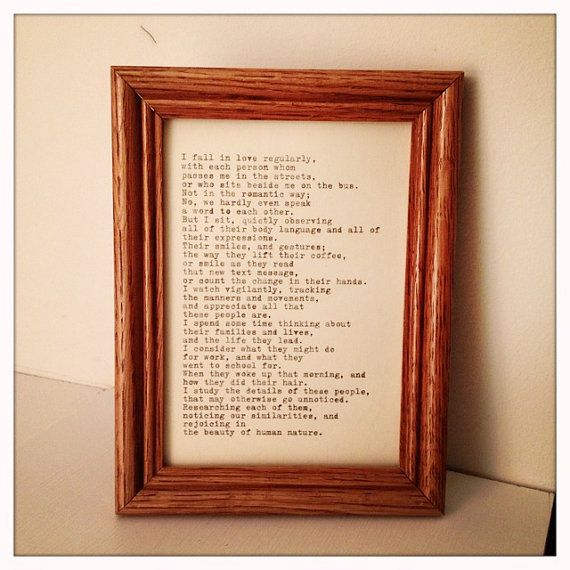 I fall in love regularly,
with each person whom
passes me in the streets,
or who sits beside me on the bus.
Not in the romantic way;
No, we hardly even speak
a word to each other.
But I sit, quietly observing
all of their body language and all of
their expressions.
Their smiles, and gestures;
the way they lift their coffee,
or smile as they read
that new text message,
or count the change in their hands.
I watch vigilantly, tracking
the manners and movements,
and appreciate all that
these people are.
I spend some time thinking about
their families and lives,
and the life they lead.
I consider what they might do
for work, and what they
went to school for.
When they woke up that morning, and
how they did their hair.
I study the details of these people,
that may otherwise go unnoticed.
Researching each of them,
noticing our similarities, and
rejoicing in
the beauty of human nature.